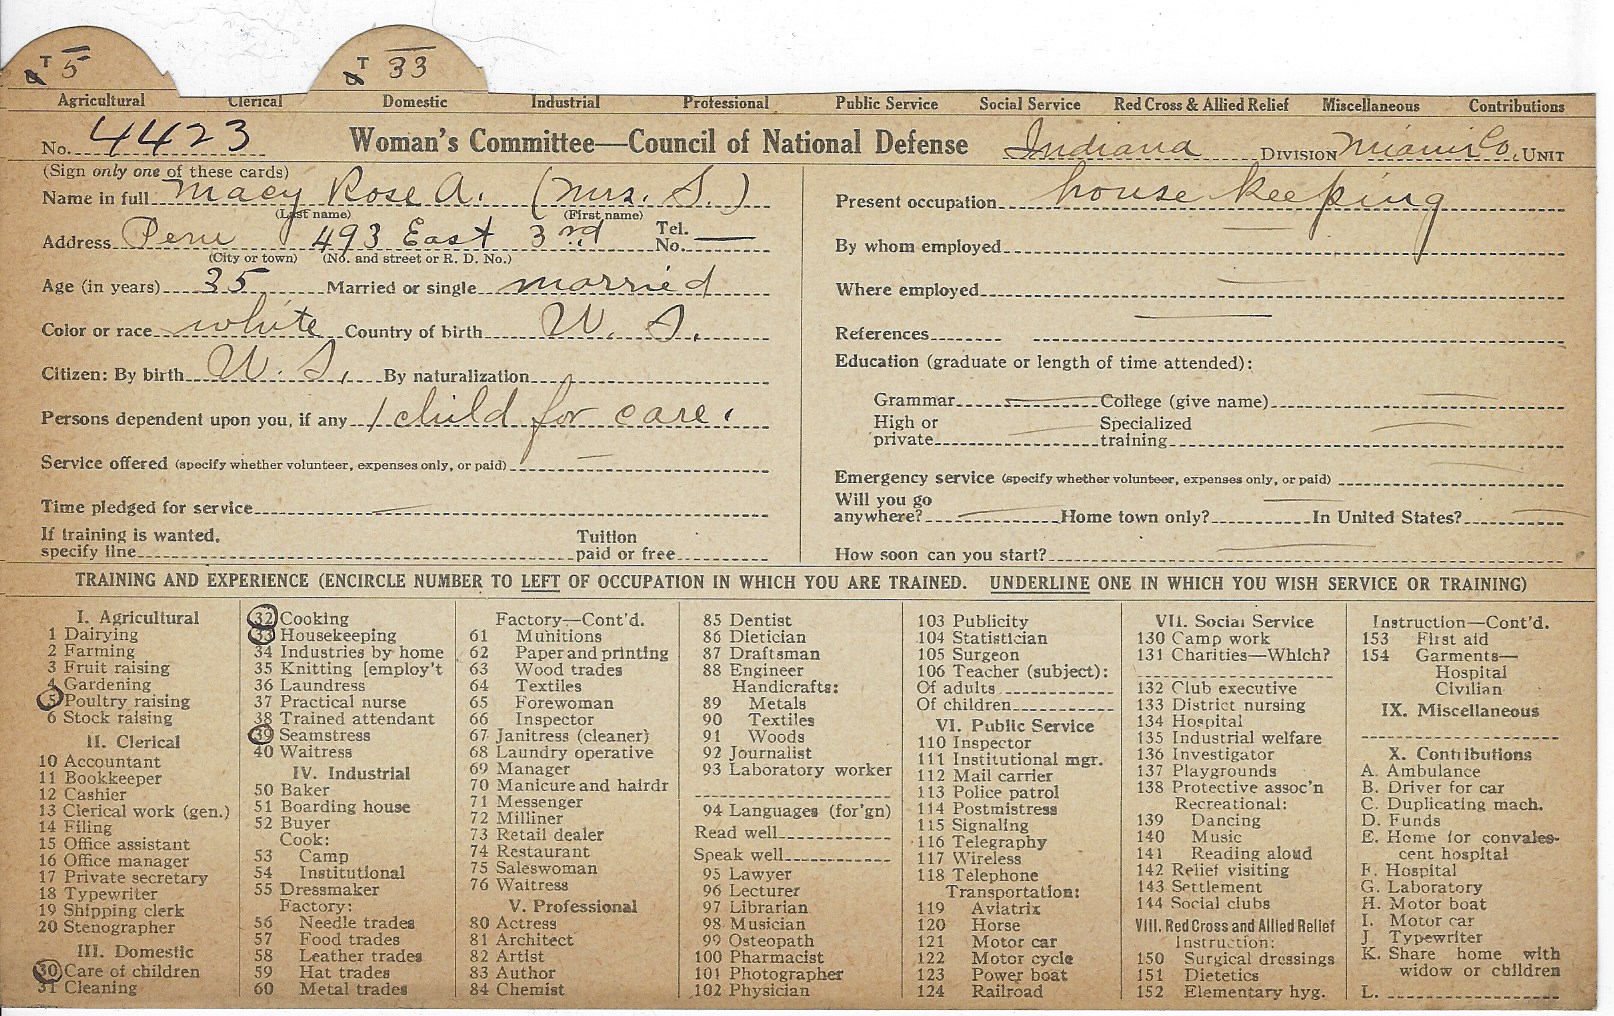 T 5 T 33
Agricultural Clerical Domestic Industrial Professional Public Service Social Service Red Cross & Allied Relief Miscellaneous Contributions
No. 4423 Woman's Committee—Council of National Defense Indiana DIVISION Miami Co. UNIT
(Sign only one of these cards)
Name in full Macy Rose A. (Mrs. S.)
(Last name) (First name)
Address Peru 493 East 3rd Tel. No. —
(City or town) (No. and street or R. D. No.)
Age (in years) 35 Married or single married
Color or race white Country of birth U. S.
Citizen: By birth U. S. By naturalization
Persons dependent upon you, if any 1 child for care.
Service offered (specify whether volunteer, expenses only, or paid) —
Time pledged for service —
If training is wanted, specify line Tuition paid or free
Present occupation house keeping
By whom employed —
Where employed —
References —
Education (graduate or length of time attended):
Grammar — College (give name) —
High or private — Specialized training —
Emergency service (specify whether volunteer, expenses only, or paid) —
Will you go anywhere? — Home town only? — In United States? —
How soon can you start? —
TRAINING AND EXPERIENCE (ENCIRCLE NUMBER TO LEFT OF OCCUPATION IN WHICH YOU ARE TRAINED. UNDERLINE ONE IN WHICH YOU WISH SERVICE OR TRAINING)
I. Agricultural
1 Dairying
2 Farming
3 Fruit raising
4 Gardening
5 Poultry raising
6 Stock raising
II. Clerical
10 Accountant
11 Bookkeeper
12 Cashier
13 Clerical work (gen.)
14 Filing
15 Office assistant
16 Office manager
17 Private secretary
18 Typewriter
19 Shipping clerk
20 Stenographer
III. Domestic
30 Care of children
31 Cleaning
32 Cooking
33 Housekeeping
34 Industries by home
35 Knitting [employ't
36 Laundress
37 Practical nurse
38 Trained attendant
39 Seamstress
40 Waitress
IV. Industrial
50 Baker
51 Boarding house
52 Buyer
Cook:
53 Camp
54 Institutional
55 Dressmaker
Factory:
56 Needle trades
57 Food trades
58 Leather trades
59 Hat trades
60 Metal trades
Factory—Cont'd.
61 Munitions
62 Paper and printing
63 Wood trades
64 Textiles
65 Forewoman
66 Inspector
67 Janitress (cleaner)
68 Laundry operative
69 Manager
70 Manicure and hairdr
71 Messenger
72 Milliner
73 Retail dealer
74 Restaurant
75 Saleswoman
76 Waitress
V. Professional
80 Actress
81 Architect
82 Artist
83 Author
84 Chemist
85 Dentist
86 Dietician
87 Draftsman
88 Engineer
Handicrafts:
89 Metals
90 Textiles
91 Woods
92 Journalist
93 Laboratory worker
94 Languages (for'gn)
Read well
Speak well
95 Lawyer
96 Lecturer
97 Librarian
98 Musician
99 Osteopath
100 Pharmacist
101 Photographer
102 Physician
103 Publicity
104 Statistician
105 Surgeon
106 Teacher (subject):
Of adults
Of children
VI. Public Service
110 Inspector
111 Institutional mgr.
112 Mail carrier
113 Police patrol
114 Postmistress
115 Signaling
116 Telegraphy
117 Wireless
118 Telephone
Transportation:
119 Aviatrix
120 Horse
121 Motor car
122 Motor cycle
123 Power boat
124 Railroad
VII. Social Service
130 Camp work
131 Charities—Which?
132 Club executive
133 District nursing
134 Hospital
135 Industrial welfare
136 Investigator
137 Playgrounds
138 Protective assoc'n
Recreational:
139 Dancing
140 Music
141 Reading aloud
142 Relief visiting
143 Settlement
144 Social clubs
VIII. Red Cross and Allied Relief
Instruction:
150 Surgical dressings
151 Dietetics
152 Elementary hyg.
Instruction—Cont'd.
153 First aid
154 Garments—
Hospital
Civilian
IX. Miscellaneous
X. Contributions
A. Ambulance
B. Driver for car
C. Duplicating mach.
D. Funds
E. Home for convales-
cent hospital
F. Hospital
G. Laboratory
H. Motor boat
I. Motor car
J. Typewriter
K. Share home with
widow or children
L.